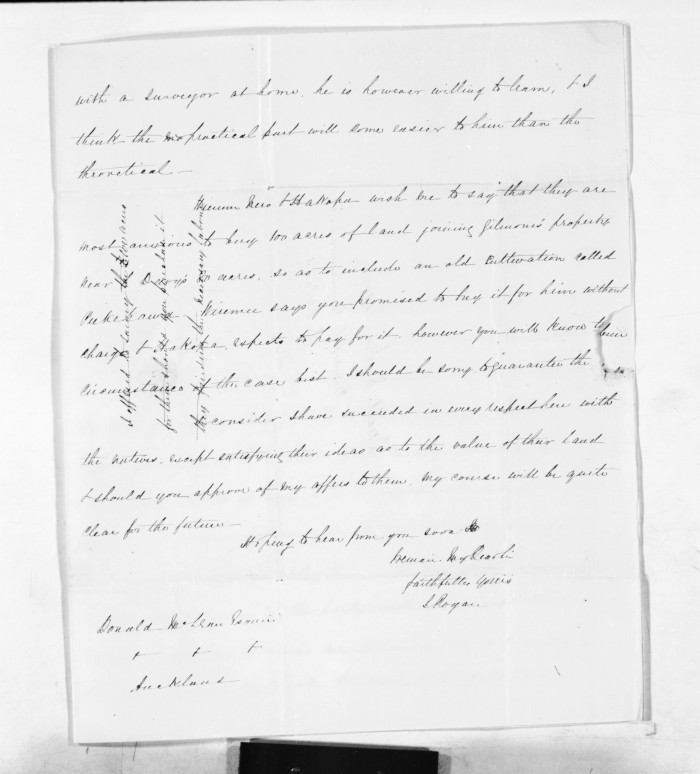 with a surveyor at home. he is however willing to learn, & I
think the practical part will come easier to him than the
theoretical —
Wiremu Nero & Hakopa wish me to say "that they are
most anxious to buy 100 acres of land joining Gilmour's property
near Duroy's acres, so as to include an old Cultivation called
Wiremu says you promised to buy it for him without
charge & Hakopa expects to pay for it. however you will know the
Circumstances of the case best. I should be sorry to guarantee the
consider I have succeeded in every respect here with
the natives, except satisfying their ideas as to the value of their land
& should you approve of my offers to them, my course will be quite
clear for the future —
Hoping to hear from you soon
Remain My Dear Sir
faithfully yours
J Rogan
Donald McLean Esquire
+ + +
Auckland
I offered to survey the
for them should you purchase it
they find the necessary labour